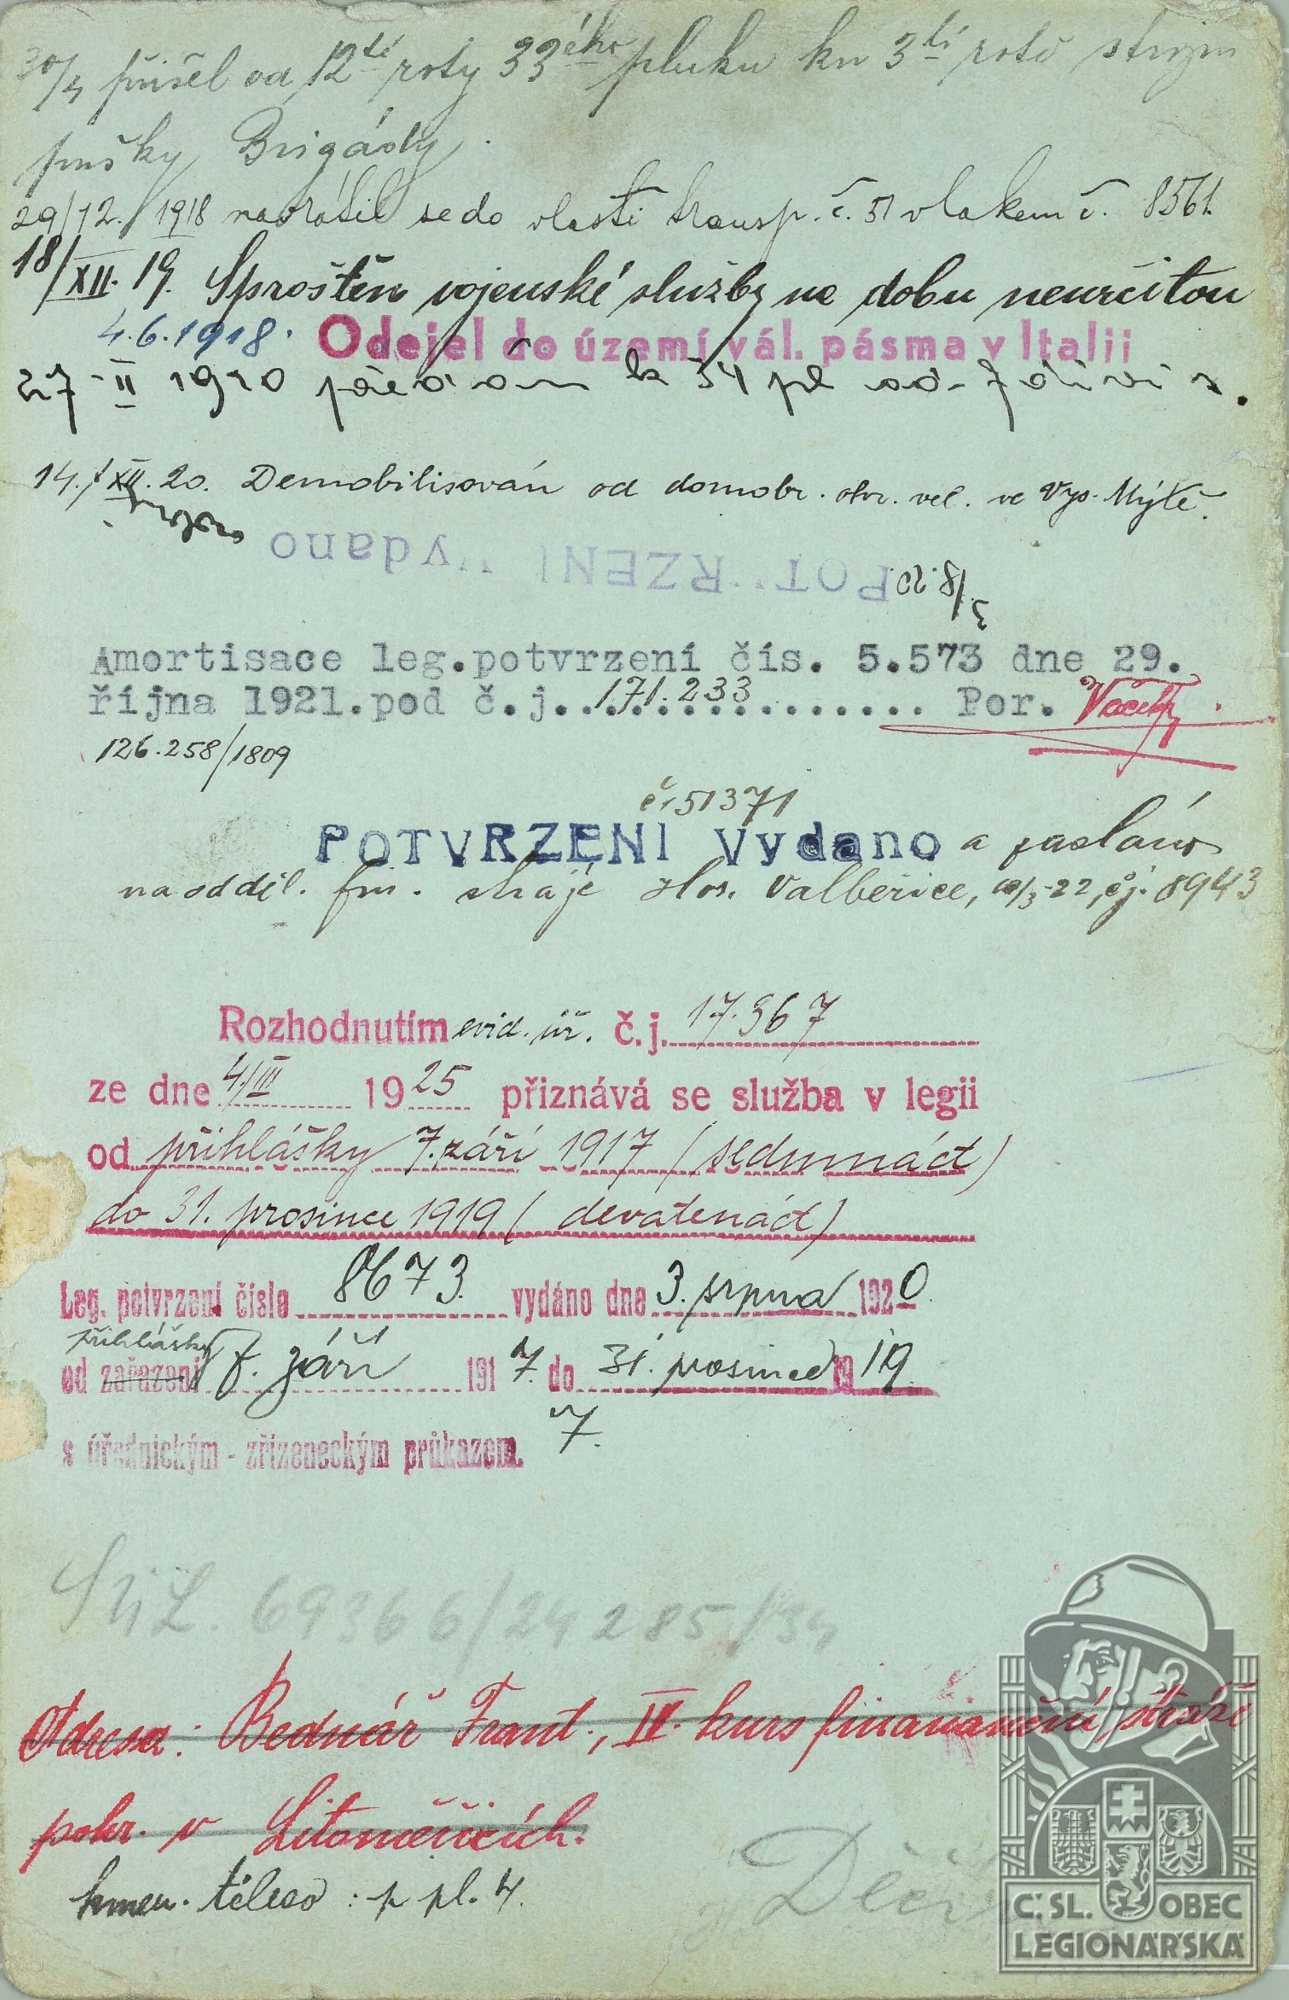 30/4 přišel od 12té roty 33ého pluku ku 3tí rotě strojní
pušky Brigády.
29/12. 1918 navrátil se do vlasti transp. č. 51 vlakem č. 8561.
18/XII. 19. Sproštěn vojenské služby na dobu neurčitou
4.6.1918. Odejel do území vál. pásma v Italii
27-II 1920 předán k 34 pl
14./XII. 20. Demobilisován od domobr. okr. vel. ve Vys. Mýtě.
POTVRZENI Vydano
3./8.20.
Amortisace leg.potvrzení čís. 5.573 dne 29.
října 1921.pod č.j. 171.233 Por.
126.258/1809
č. 51371
POTVRZENI Vydano a zasláno
na odděl. fin. stráje Hor. Valbeřice, /3-22, čj. 8943
Rozhodnutím evid. úř. č.j. 17.367
ze dne 4/III 1925 přiznává se služba v legii
od přihlášky 7. září 1917 (sedmnáct)
do 31. prosince 1919 (devatenáct)
Leg. potvrzení číslo 8673. vydáno dne 3. srpna 1920.
přihlášky
od zařazení 7. září 1917. do 31. prosince 1919.
s úřednickým - zřízeneckým průkazem. 7.
69366/24285/34
Adresa: Bednář Frant., II. kurs finananční stráže
pohr. v Litoměřicích.
kmen. těleso : p pl. 4.
Děčín
Č. SL. OBEC
LEGIONÁŘSKÁ